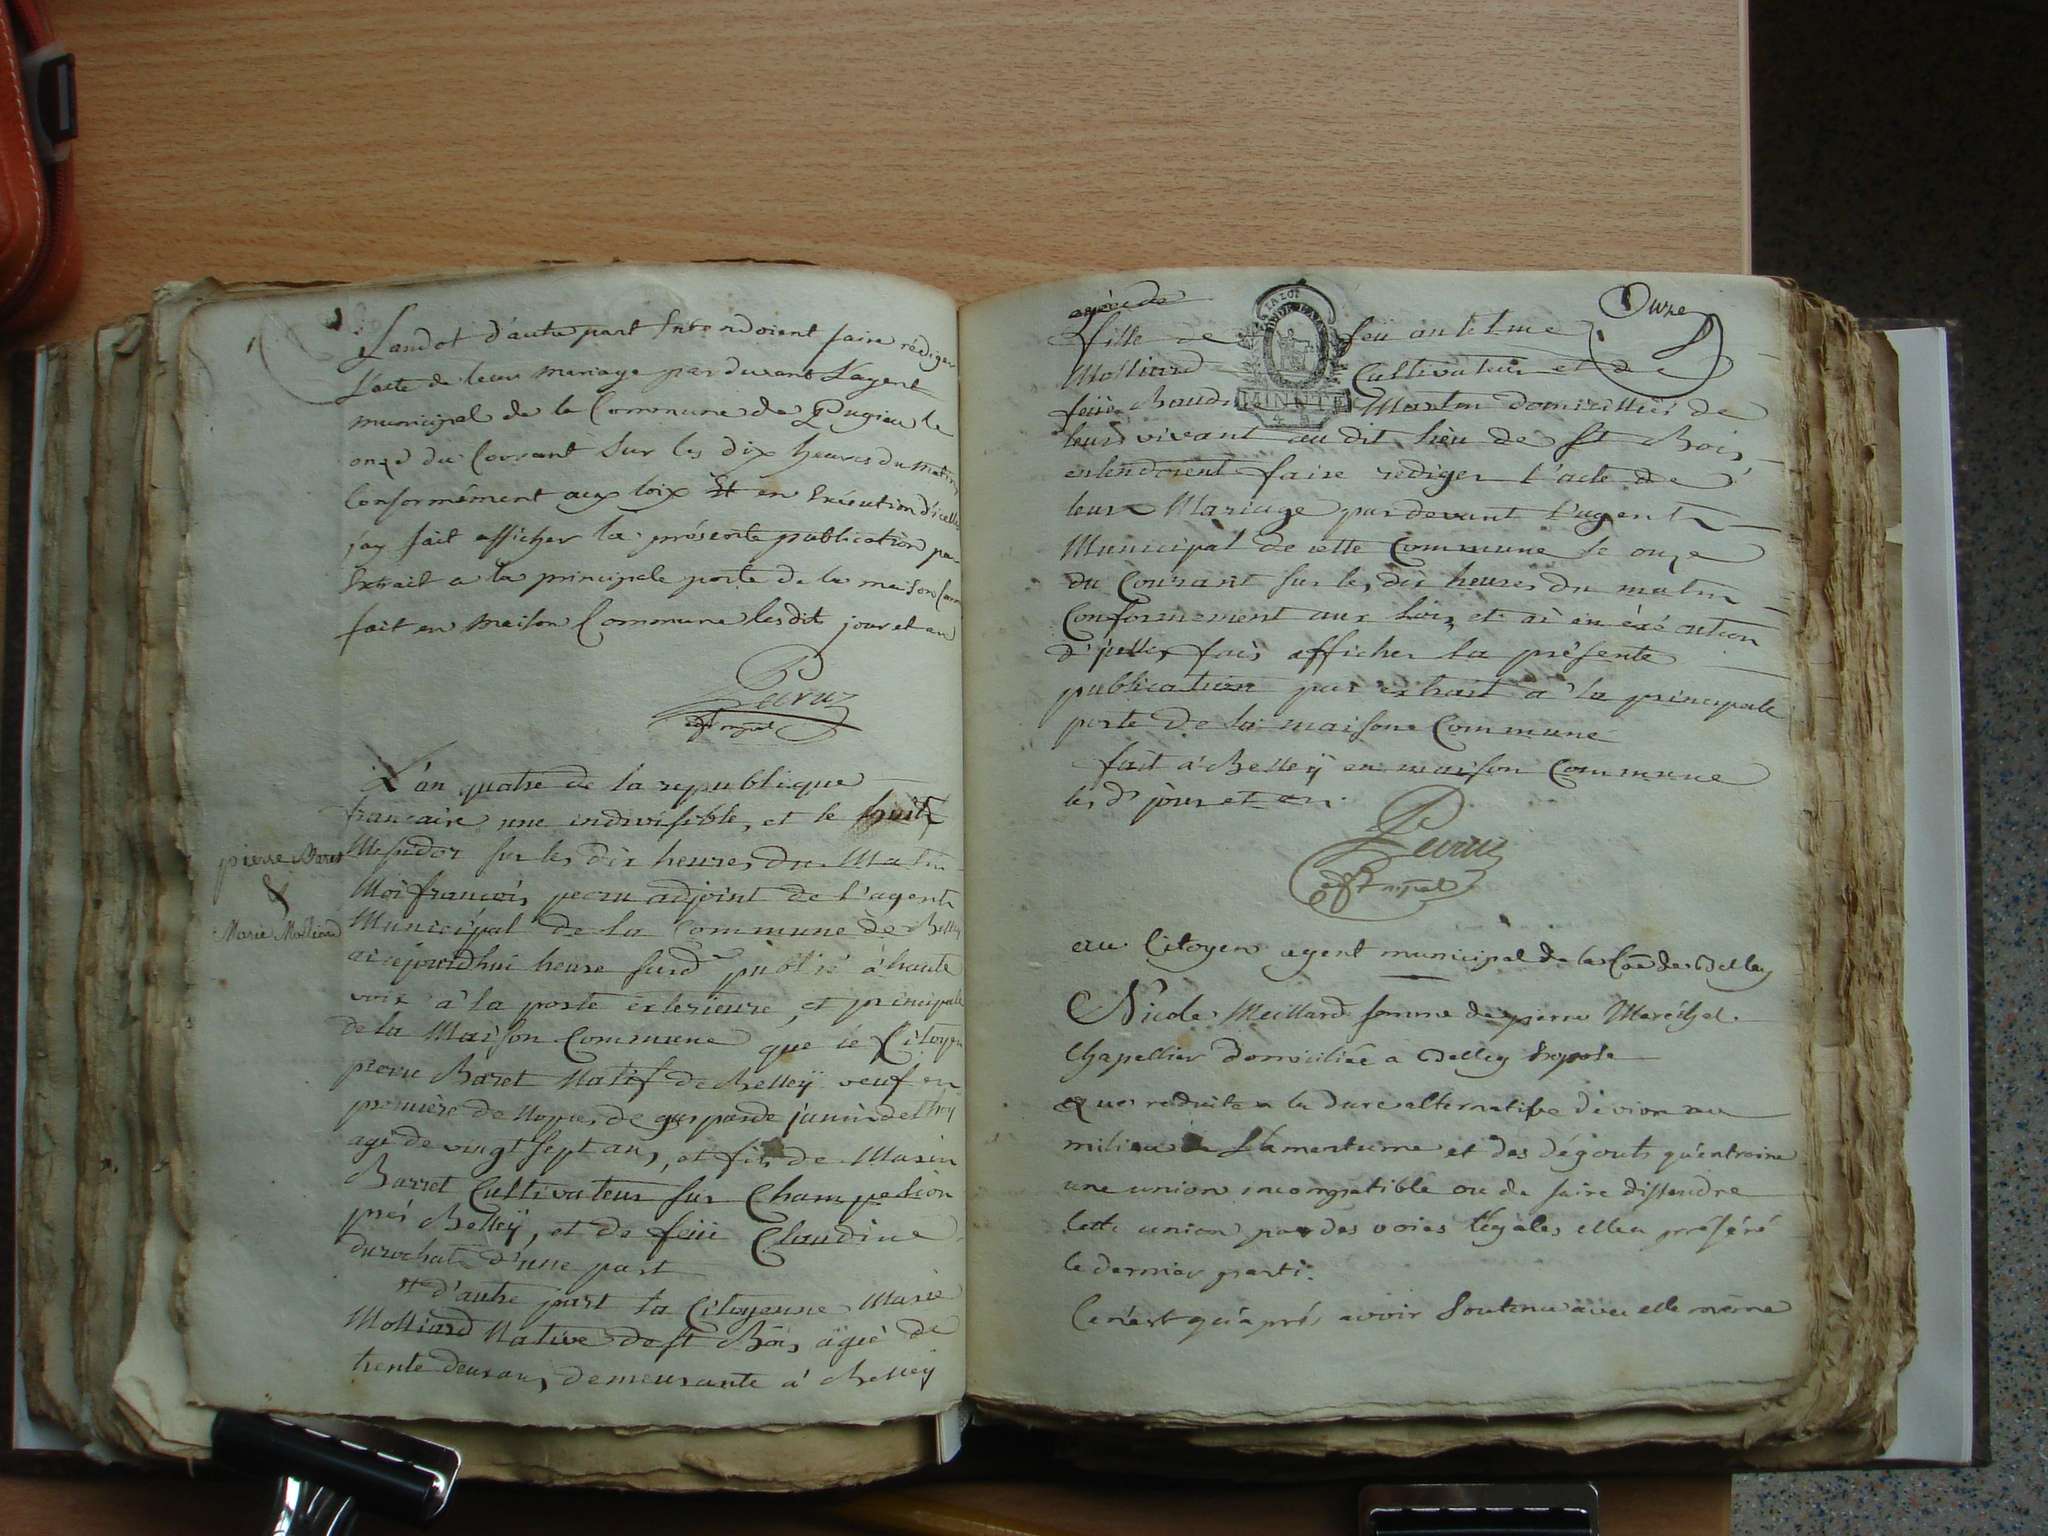 Landot d'autre part Entendoient faire rédiger
L'acte de leur mariage par devant L'agent
municipal de la Commune de Pugieu le
onze du Courant Sur les dix heures du matin
Conformément aux loix Et en Exécution d'icelles
j'ay fait afficher la présente publication par
Extrait a la principale porte de la maison Com
fait en maison Commune lesdit jour et an
Peiruz
agt mpal
L'an quatre de la republique
francaise une indivisible, et le huit
Messidor sur les dix heures du Matin
Moi francois peiru adjoint de l'agent
Municipal de la Commune de Belley
ai aujourdhui heure susd publié à haute
voix à la porte exterieure, et principale
de la Maison Commune que le Citoyen
pierre Baret Natif de Belleÿ veuf en
première de Nopces de gasparde janin de
agé de vingt sept ans, et fils de Marin
Barret Cultivateur sur Champ
près Belleÿ, et de feüe Claudine
durochat d'une part
Et d'autre part la Citoyenne Marie
Molliard Native de St Bois, agée de
trente deux ans, demeurante à Belleÿ
pierre Baret
&
Marie Molliard
Onze
fille de feu antelme
Molliard Cultivateur et de
feüe Martin domicilliés de
leur vivant au dit lieu de St Bois,
entendoient faire rediger l'acte de
leur Mariage par devant l'agent
Municipal de cette Commune le onze
du Courant sur les dix heures du matin
Conformement aux Loix, et ai en éxécution
d'icelles fais afficher la présente
publication par extrait a la principale
porte de la maison Commune
fait a Belleÿ en maison Commune
les d' jour et an.
Peiruz
agt mpal
LA LOI
MINUTE
au Citoyen agent municipal de la Coe de Belley
Nicole Meillard femme de pierre Maréchal
Chapellier domiciliée a Belley Expose
Que reduite a la dure alternative de vivre au
milieu de L'amertume et des dégouts qu'entraine
une union incompatible ou de faire dissoudre
Cette union par des voies légales elle a préféré
le dernier parti.
Ce n'est qu'après avoir Soutenu avec elle même